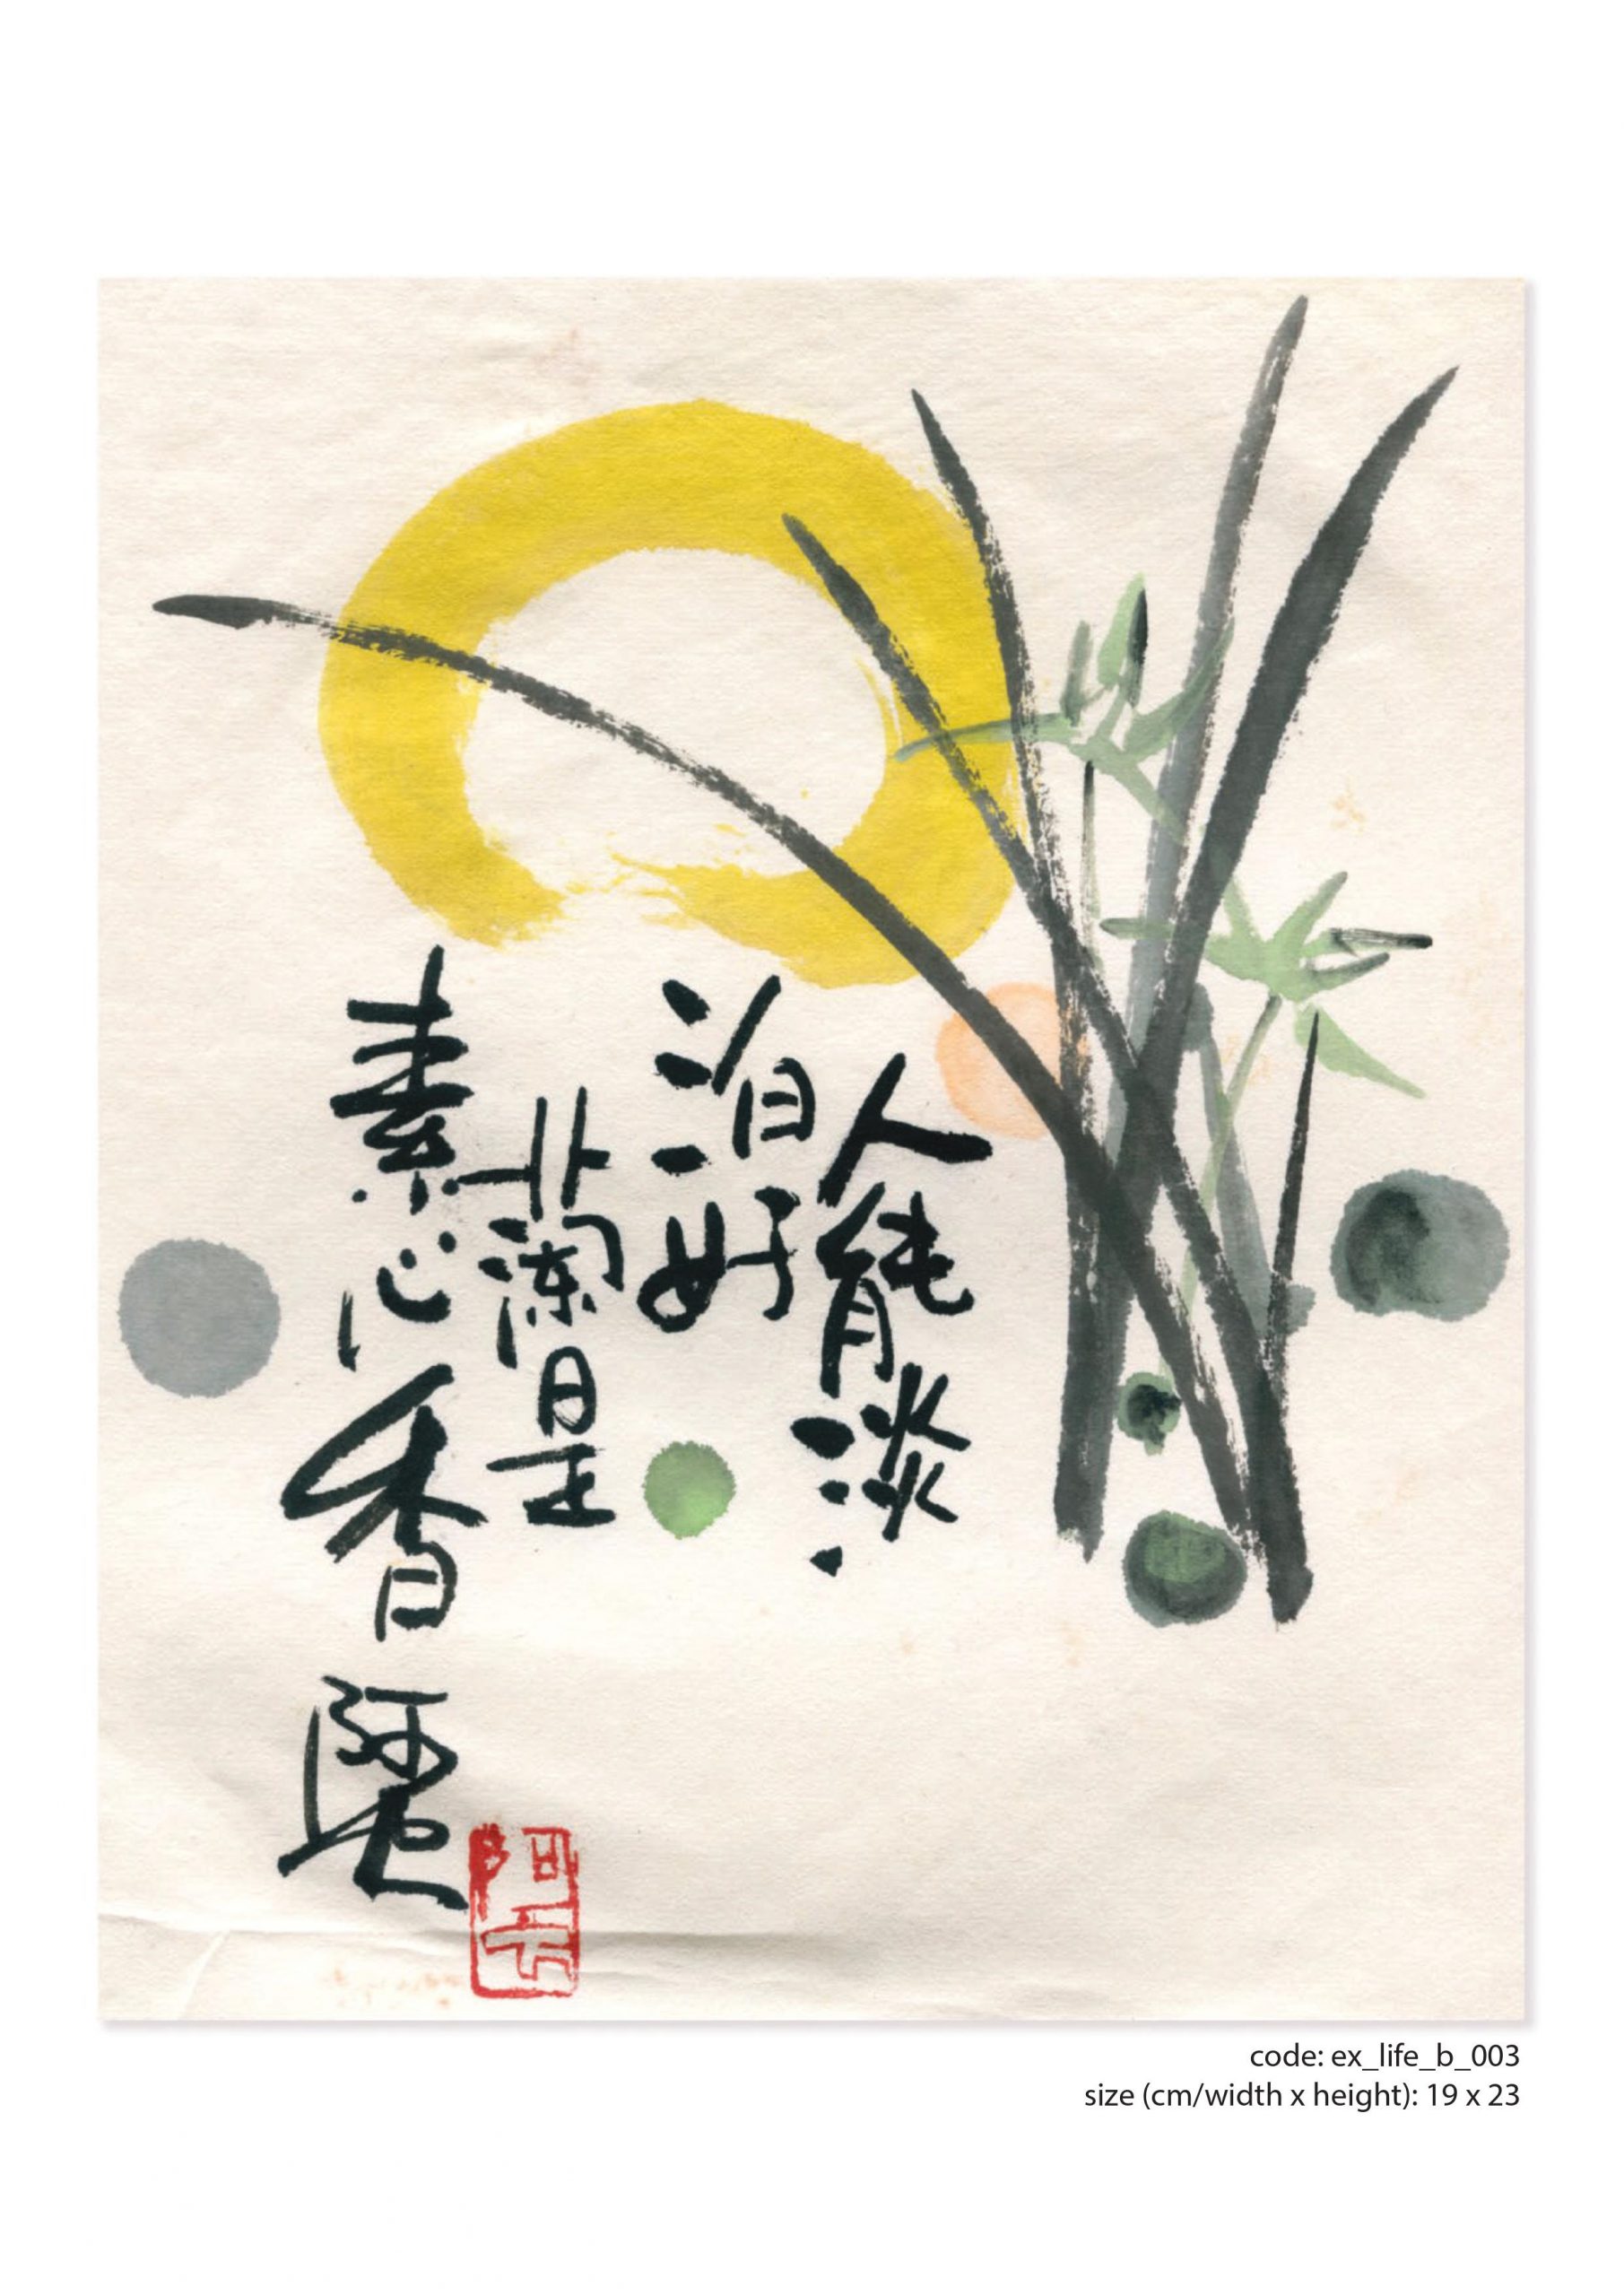 人能淡
泊好
蘭是
素心香
code: ex_life_b_003
size (cm/width x height): 19 x 23